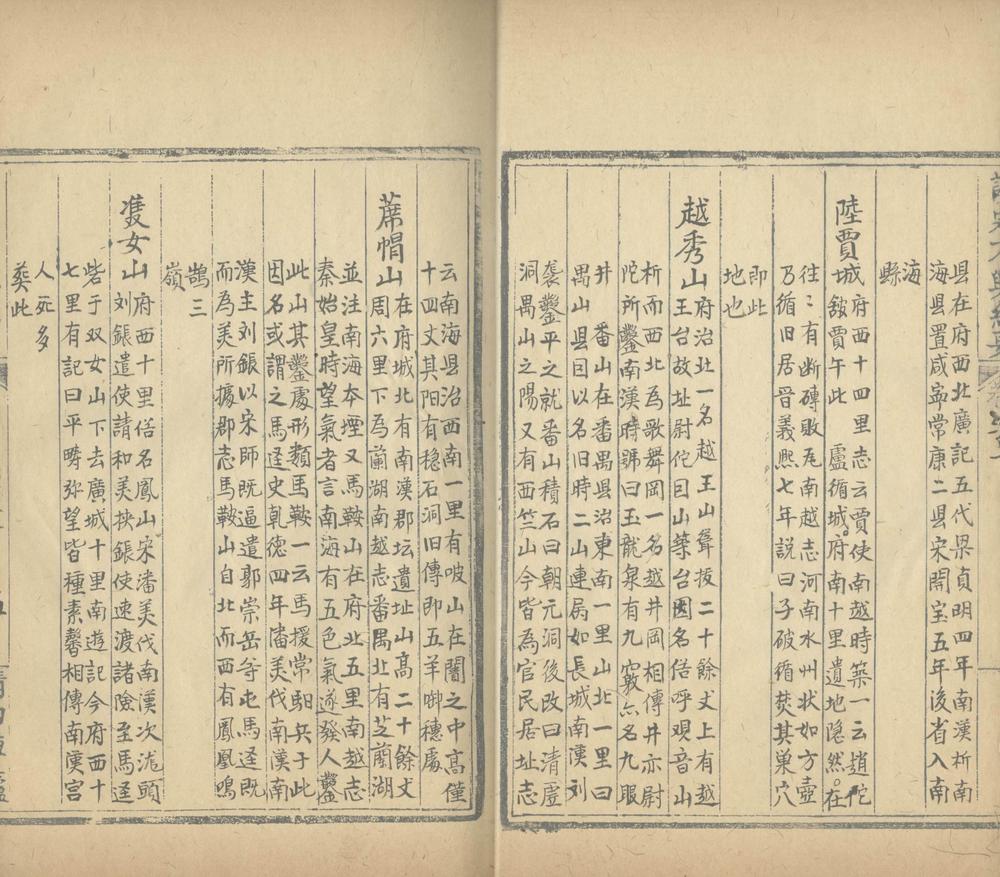 县在府西北廣記五代梁貞明四年南漢析南
海县置咸寍常康二县宋開宝五年後省入南
海
縣
陸賈城
府西十四里志云賈使南越時築一云趙佗
舘賈午此　盧循城府南十里遺地隐然在
往〻有断磚敗瓦南越志河南水州状如方壺
乃循旧居晋義熙七年説曰子破循焚其巢穴
即此
地也
越秀山
府治北一名越王山聳拔二十餘丈上有越
王台故址尉佗因山築台因名俗呼覌音山
析而西北為歌舞岡一名越井岡相傳井亦尉
陀所鑿南漢時號曰玉龍泉有九竅亦名九眼
井　番山在番禺县治東南一里山北一里曰
禺山县因以名旧時二山連局如長城南漢刘
龑鑿平之就番山積石曰朝元洞後改曰清虗
洞禺山之陽又有西竺山今皆為官民居址志
云南海县治西南一里有坡山在闤之中高僅
十四丈其阳有穗石洞旧傳即五羊啣穗處
蓆帽山
在府城北有南漢郡坛遺址山高二十餘丈
周六里下為蘭湖南越志番禺北有芝蘭湖
並注南海夲堙又馬鞍山在府北五里南越志
秦始皇時望氣者言南海有五色氣遂發人鑿
此山其鑿處形類馬鞍一云馬援常駐兵于此
因名或謂之馬逕史乹德四年潘美伐南漢南
漢主刘鋹以宋師既逼遣郭崇岳等屯馬逕既
而為美所擄郡志馬鞍山自北而西有鳳凰鳴
鵠三
嶺
隻女山
府西十里俗名鳳山宋潘美伐南漢次瀧頭
刘鋹遣使請和美挾鋹使速渡諸險至馬逕
砦于双女山下去廣城十里南遊記今府西十
七里有記曰平疇弥望皆種素馨相傳南漢宫
人死多
葬此